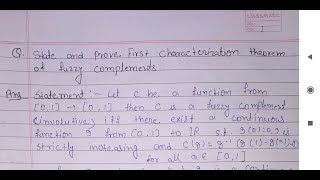 classmate
1
Q. State and prove First characterization theorem
of fuzzy complements
Ans Statement :- Let C be a function from
[0,1] → [0,1] then C is a fuzzy complement
(involutive) iff there exist a continuous
function g from [0,1] to IR s.t. g(0)=0, g is
strictly increasing and C(a)= g⁻¹ (g(1)-g(a))
for all a∈ [0,1]